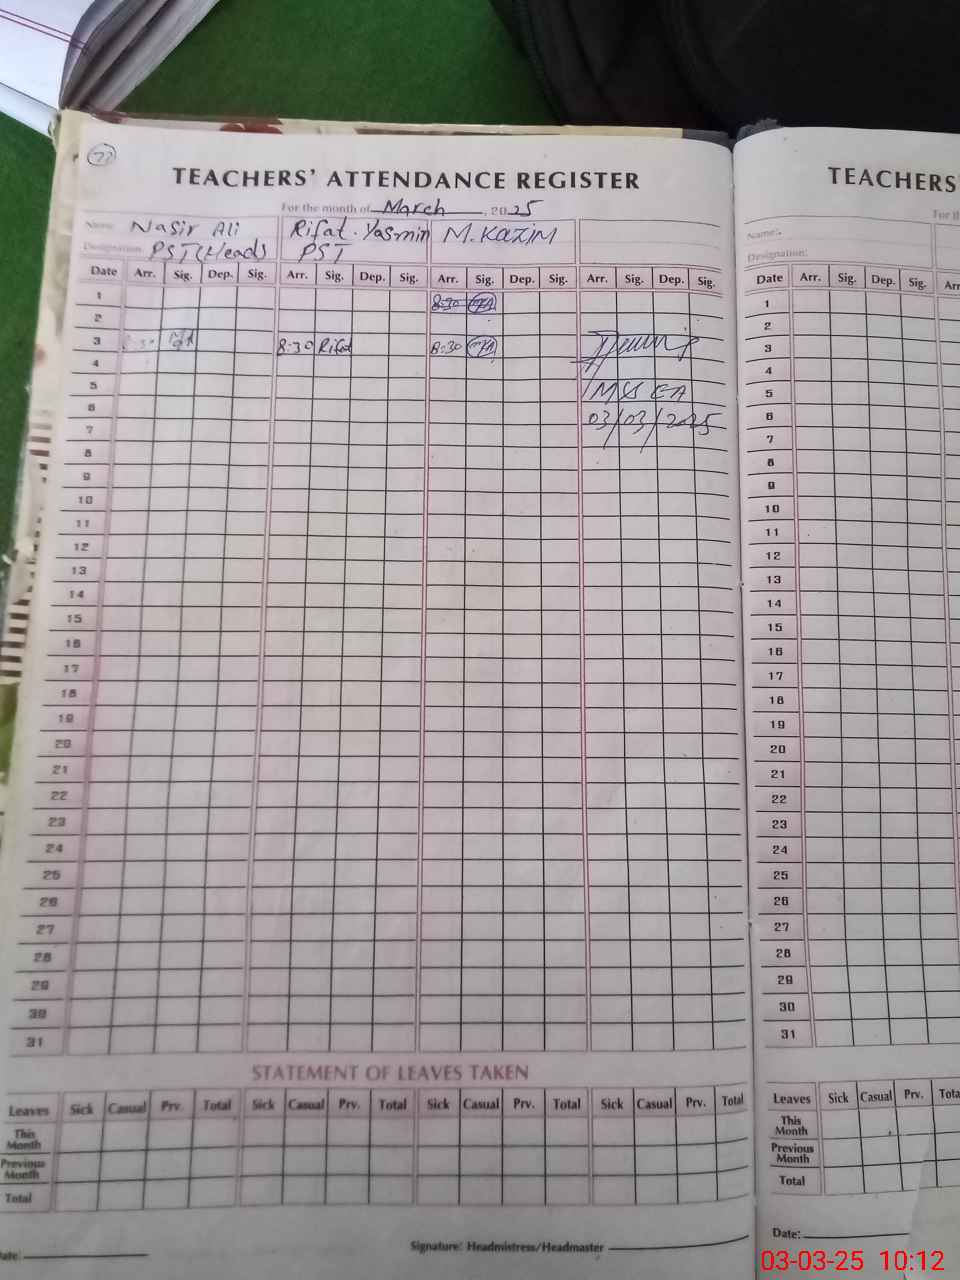 77
TEACHERS' ATTENDANCE REGISTER
For the month of March, 2025
Name: Nasir Ali Rifat. Yasmin M. KAZIM
Designation PST (Head) PST
Date Arr. Sig. Dep. Sig. Arr. Sig. Dep. Sig. Arr. Sig. Dep. Sig. Arr. Sig. Dep. Sig.
1 8:30
2
3 8:30 8:30 Rifat 8:30
4
5
6 03/03/2025
7
8
9
10
11
12
13
14
15
16
17
18
19
20
21
22
23
24
25
26
27
28
29
30
31
STATEMENT OF LEAVES TAKEN
Leaves Sick Casual Prv. Total Sick Casual Prv. Total Sick Casual Prv. Total Sick Casual Prv. Total
This Month
Previous Month
Total
Date:
Signature: Headmistress/Headmaster
TEACHERS'
For th
Name:
Designation:
Date Arr. Sig. Dep. Sig. Arr
1
2
3
4
5
6
7
8
9
10
11
12
13
14
15
16
17
18
19
20
21
22
23
24
25
26
27
28
29
30
31
Leaves Sick Casual Prv. Tota
This Month
Previous Month
Total
Date:
03-03-25 10:12